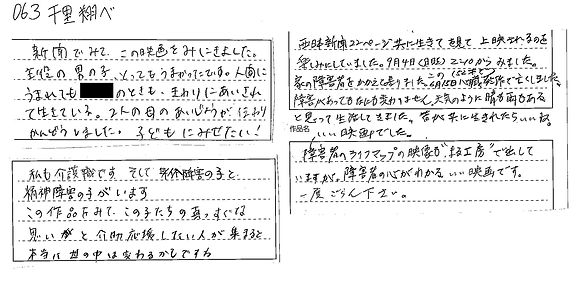 063 千里翔べ
新聞でみて、この映画をみにきました。
主役の男の子、とってもうまかったです。人間に
うまれても のときも、まわりにあいされ
て生きている。2人の母のあいじょうが伝わり
かんどうしました。子どもにみせたい!
私も介護職です そして 身体障害の子と
精神障害の子がいます
この作品をみて この子たちの真っすぐな
思いがと 介助応援したい人が集まると
本当に世の中は変わるかしですね
西日本新聞 ページ 共に生きて を見て 上映されるのを
楽しみにしていました。9月4日(日)2:40からみました。
家の障害者をかかえと走りました この 6月15日心臓発作で亡くしました。
障害があってもなにも変わりません。天気のように晴も雨もある
と思って生活してきました。皆が共に生きれたらいいね。
作品名
いい映画でした。
障害者のライフマップの映像が"まる工房"で出して
いますが。障害者の心がわかる いい映画です。
一度ごらん下さい。